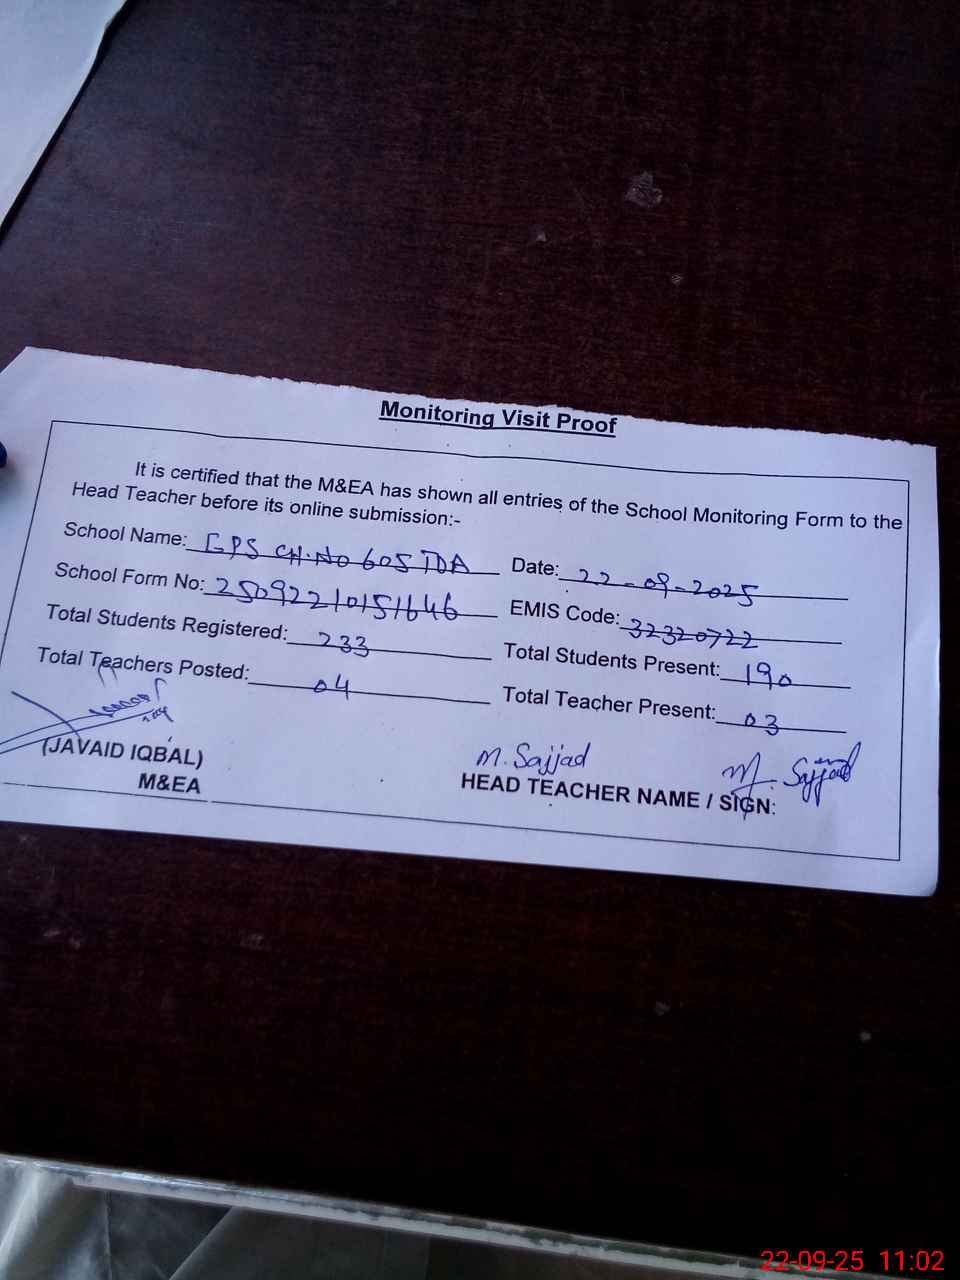 Monitoring Visit Proof
It is certified that the M&EA has shown all entries of the School Monitoring Form to the
Head Teacher before its online submission:-
School Name: GPS CH.NO 605 TDA Date: 22-09-2025
School Form No: 25092210151646 EMIS Code: 32320722
Total Students Registered: 233 Total Students Present: 190
Total Teachers Posted: 04 Total Teacher Present: 03
(JAVAID IQBAL) M. Sajjad M. Sajjad
M&EA HEAD TEACHER NAME / SIGN:
22-09-25 11:02